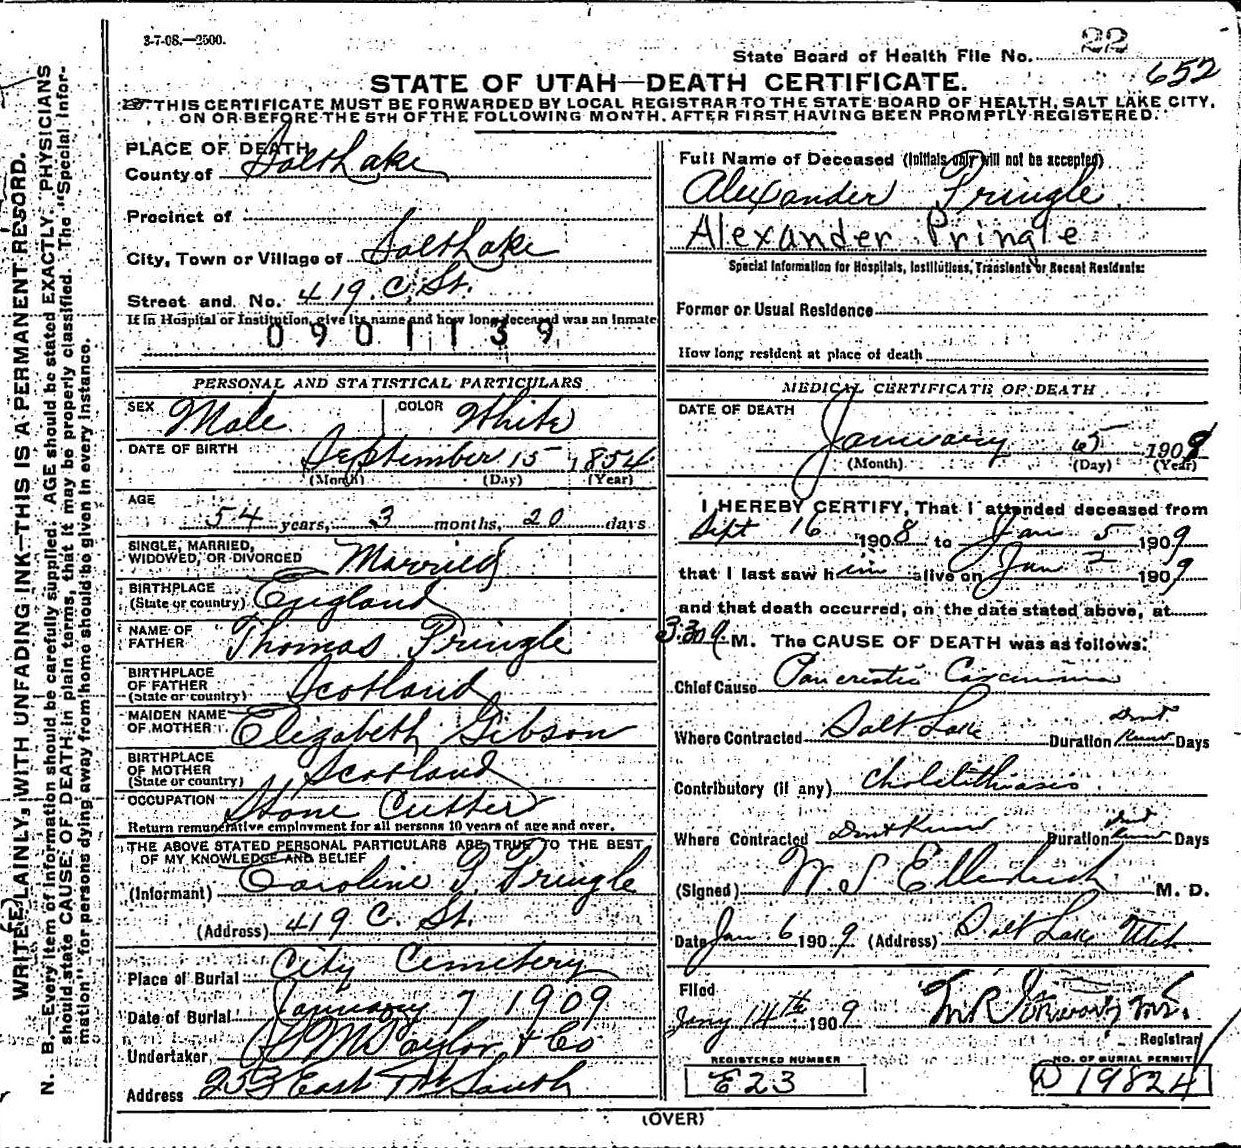 3-7-08.—2500.
State Board of Health File No. 22
652
STATE OF UTAH—DEATH CERTIFICATE.
THIS CERTIFICATE MUST BE FORWARDED BY LOCAL REGISTRAR TO THE STATE BOARD OF HEALTH, SALT LAKE CITY,
ON OR BEFORE THE 5TH OF THE FOLLOWING MONTH, AFTER FIRST HAVING BEEN PROMPTLY REGISTERED.
WRITE PLAINLY, WITH UNFADING INK—THIS IS A PERMANENT RECORD.
N. B.—Every item of information should be carefully supplied. AGE should be stated EXACTLY. PHYSICIANS
should state CAUSE OF DEATH in plain terms, that it may be properly classified. The "Special Infor-
mation" for persons dying away from home should be given in every instance.
PLACE OF DEATH
County of Salt Lake
Precinct of
City, Town or Village of Salt Lake
Street and No. 419 C. St.
If in Hospital or Institution, give its name and how long deceased was an Inmate
0901139
PERSONAL AND STATISTICAL PARTICULARS
SEX Male COLOR White
DATE OF BIRTH September 15, 1854
(Month) (Day) (Year)
AGE
54 years, 3 months, 20 days
SINGLE, MARRIED,
WIDOWED, OR DIVORCED Married
BIRTHPLACE
(State or country) England
NAME OF
FATHER Thomas Pringle
BIRTHPLACE
OF FATHER
(State or country) Scotland
MAIDEN NAME
OF MOTHER Elizabeth Gibson
BIRTHPLACE
OF MOTHER
(State or country) Scotland
OCCUPATION Stone Cutter
Return remunerative employment for all persons 10 years of age and over.
THE ABOVE STATED PERSONAL PARTICULARS ARE TRUE TO THE BEST
OF MY KNOWLEDGE AND BELIEF
(Informant) Caroline Pringle
(Address) 419 C. St.
Place of Burial City Cemetery
Date of Burial January 7 1909
Undertaker Taylor & Co
Address 253 East South
Full Name of Deceased (Initials only will not be accepted)
Alexander Pringle
Alexander Pringle
Special Information for Hospitals, Institutions, Transients or Recent Residents:
Former or Usual Residence
How long resident at place of death
MEDICAL CERTIFICATE OF DEATH
DATE OF DEATH
January 5 1909
(Month) (Day) (Year)
I HEREBY CERTIFY, That I attended deceased from
Sept 16 1908 to Jan 5 1909
that I last saw him alive on Jan 2 1909
and that death occurred, on the date stated above, at
3.30 M. The CAUSE OF DEATH was as follows:
Chief Cause Pancreatic Carcinoma
Where Contracted Salt Lake Duration Dont Know Days
Contributory (if any) Cholelithiasis
Where Contracted Dont Know Duration Dont Know Days
(Signed) W. S. Ellerbeck M. D.
Date Jan 6 1909 (Address) Salt Lake Utah.
Filed
Jany 14th 1909
Registrar
REGISTERED NUMBER
E23
NO. OF BURIAL PERMIT
D 19824
(OVER)